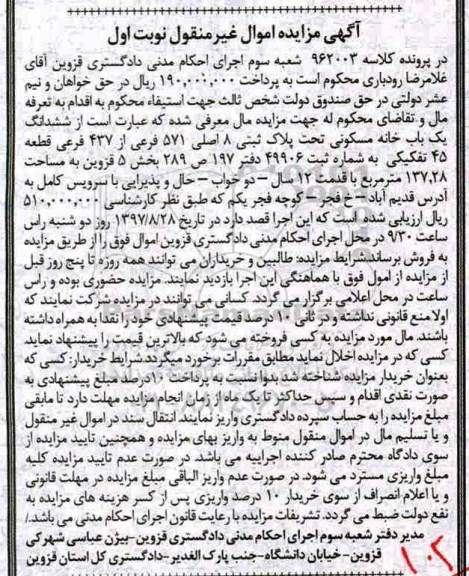 آگهی مزایده اموال غیرمنقول نوبت اول
در پرونده کلاسه ۹۶۲۰۰۳ شعبه سوم اجرای احکام مدنی دادگستری قزوین آقای
غلامرضا رودباری محکوم است به پرداخت ۱۹۰,۰۰۰,۰۰۰ ریال در حق خواهان و نیم
عشر دولتی در حق صندوق دولت شخص ثالث جهت استیفاء محکوم به اقدام به تعرفه
مال و تقاضای محکوم له جهت مزایده مال معرفی شده که عبارت است از ششدانگ
یک باب خانه مسکونی تحت پلاک ثبتی ۸ اصلی ۵۷۱ فرعی از ۴۳۷ فرعی قطعه
۴۵ تفکیکی به شماره ثبت ۴۹۹۰۶ دفتر ۱۹۷ ص ۲۸۹ بخش ۵ قزوین به مساحت
۱۳۷,۲۸ مترمربع با قدمت ۱۲ سال – دو خواب – حال و پذیرایی با سرویس کامل به
آدرس قدیم آباد – خ فجر – کوچه فجر یکم که طبق نظر کارشناسی ۵۱۰,۰۰۰,۰۰۰
ریال ارزیابی شده است که این اجرا قصد دارد در تاریخ ۱۳۹۷/۸/۲۸ روز دو شنبه راس
ساعت ۹/۳۰ در محل اجرای احکام مدنی دادگستری قزوین اموال فوق را از طریق مزایده
به فروش برساند.شرایط مزایده: طالبین و خریداران می توانند همه روزه تا پنج روز قبل
از مزایده از امول فوق با هماهنگی این اجرا بازدید نمایند. مزایده حضوری بوده و راس
ساعت در محل اعلامی برگزار می گردد. کسانی می توانند در مزایده شرکت نمایند که
اولا منع قانونی نداشته و در ثانی ۱۰ درصد قیمت پیشنهادی خود را نقدا به همراه داشته
باشند. مال مورد مزایده به کسی فروخته می شود که بالاترین قیمت را پیشنهاد نماید
کسی که در مزایده اخلال نماید مطابق مقررات برخورد میگردد. شرایط خریدار: کسی که
بعنوان خریدار مزایده شناخته شد بدوا نسبت به پرداخت ۱۰درصد مبلغ پیشنهادی به
صورت نقدی اقدام و سپس حداکثر تا یک ماه از زمان انجام مزایده مهلت دارد تا مابقی
مبلغ مزایده را به حساب سپرده دادگستری واریز نمایند. انتقال سند در اموال غیر منقول
و یا تسلیم مال در اموال منقول منوط به واریز بهای مزایده و همچنین تایید مزایده از
سوی دادگاه محترم صادر کننده اجراییه می باشد. در صورت عدم تایید مزایده کلیه
مبلغ واریزی مسترد می شود. در صورت عدم واریز الباقی مبلغ مزایده در مهلت قانونی
و یا اعلام انصراف از سوی خریدار ۱۰ درصد واریزی پس از کسر هزینه های مزایده به
نفع دولت ضبط می گردد. تشریفات مزایده با رعایت قانون اجرای احکام مدنی می باشد./
مدیر دفتر شعبه سوم اجرای احکام مدنی دادگستری قزوین-بیژن عباسی شهرکی
قزوین- خیابان دانشگاه-جنب پارک الغدیر -دادگستری کل استان قزوین